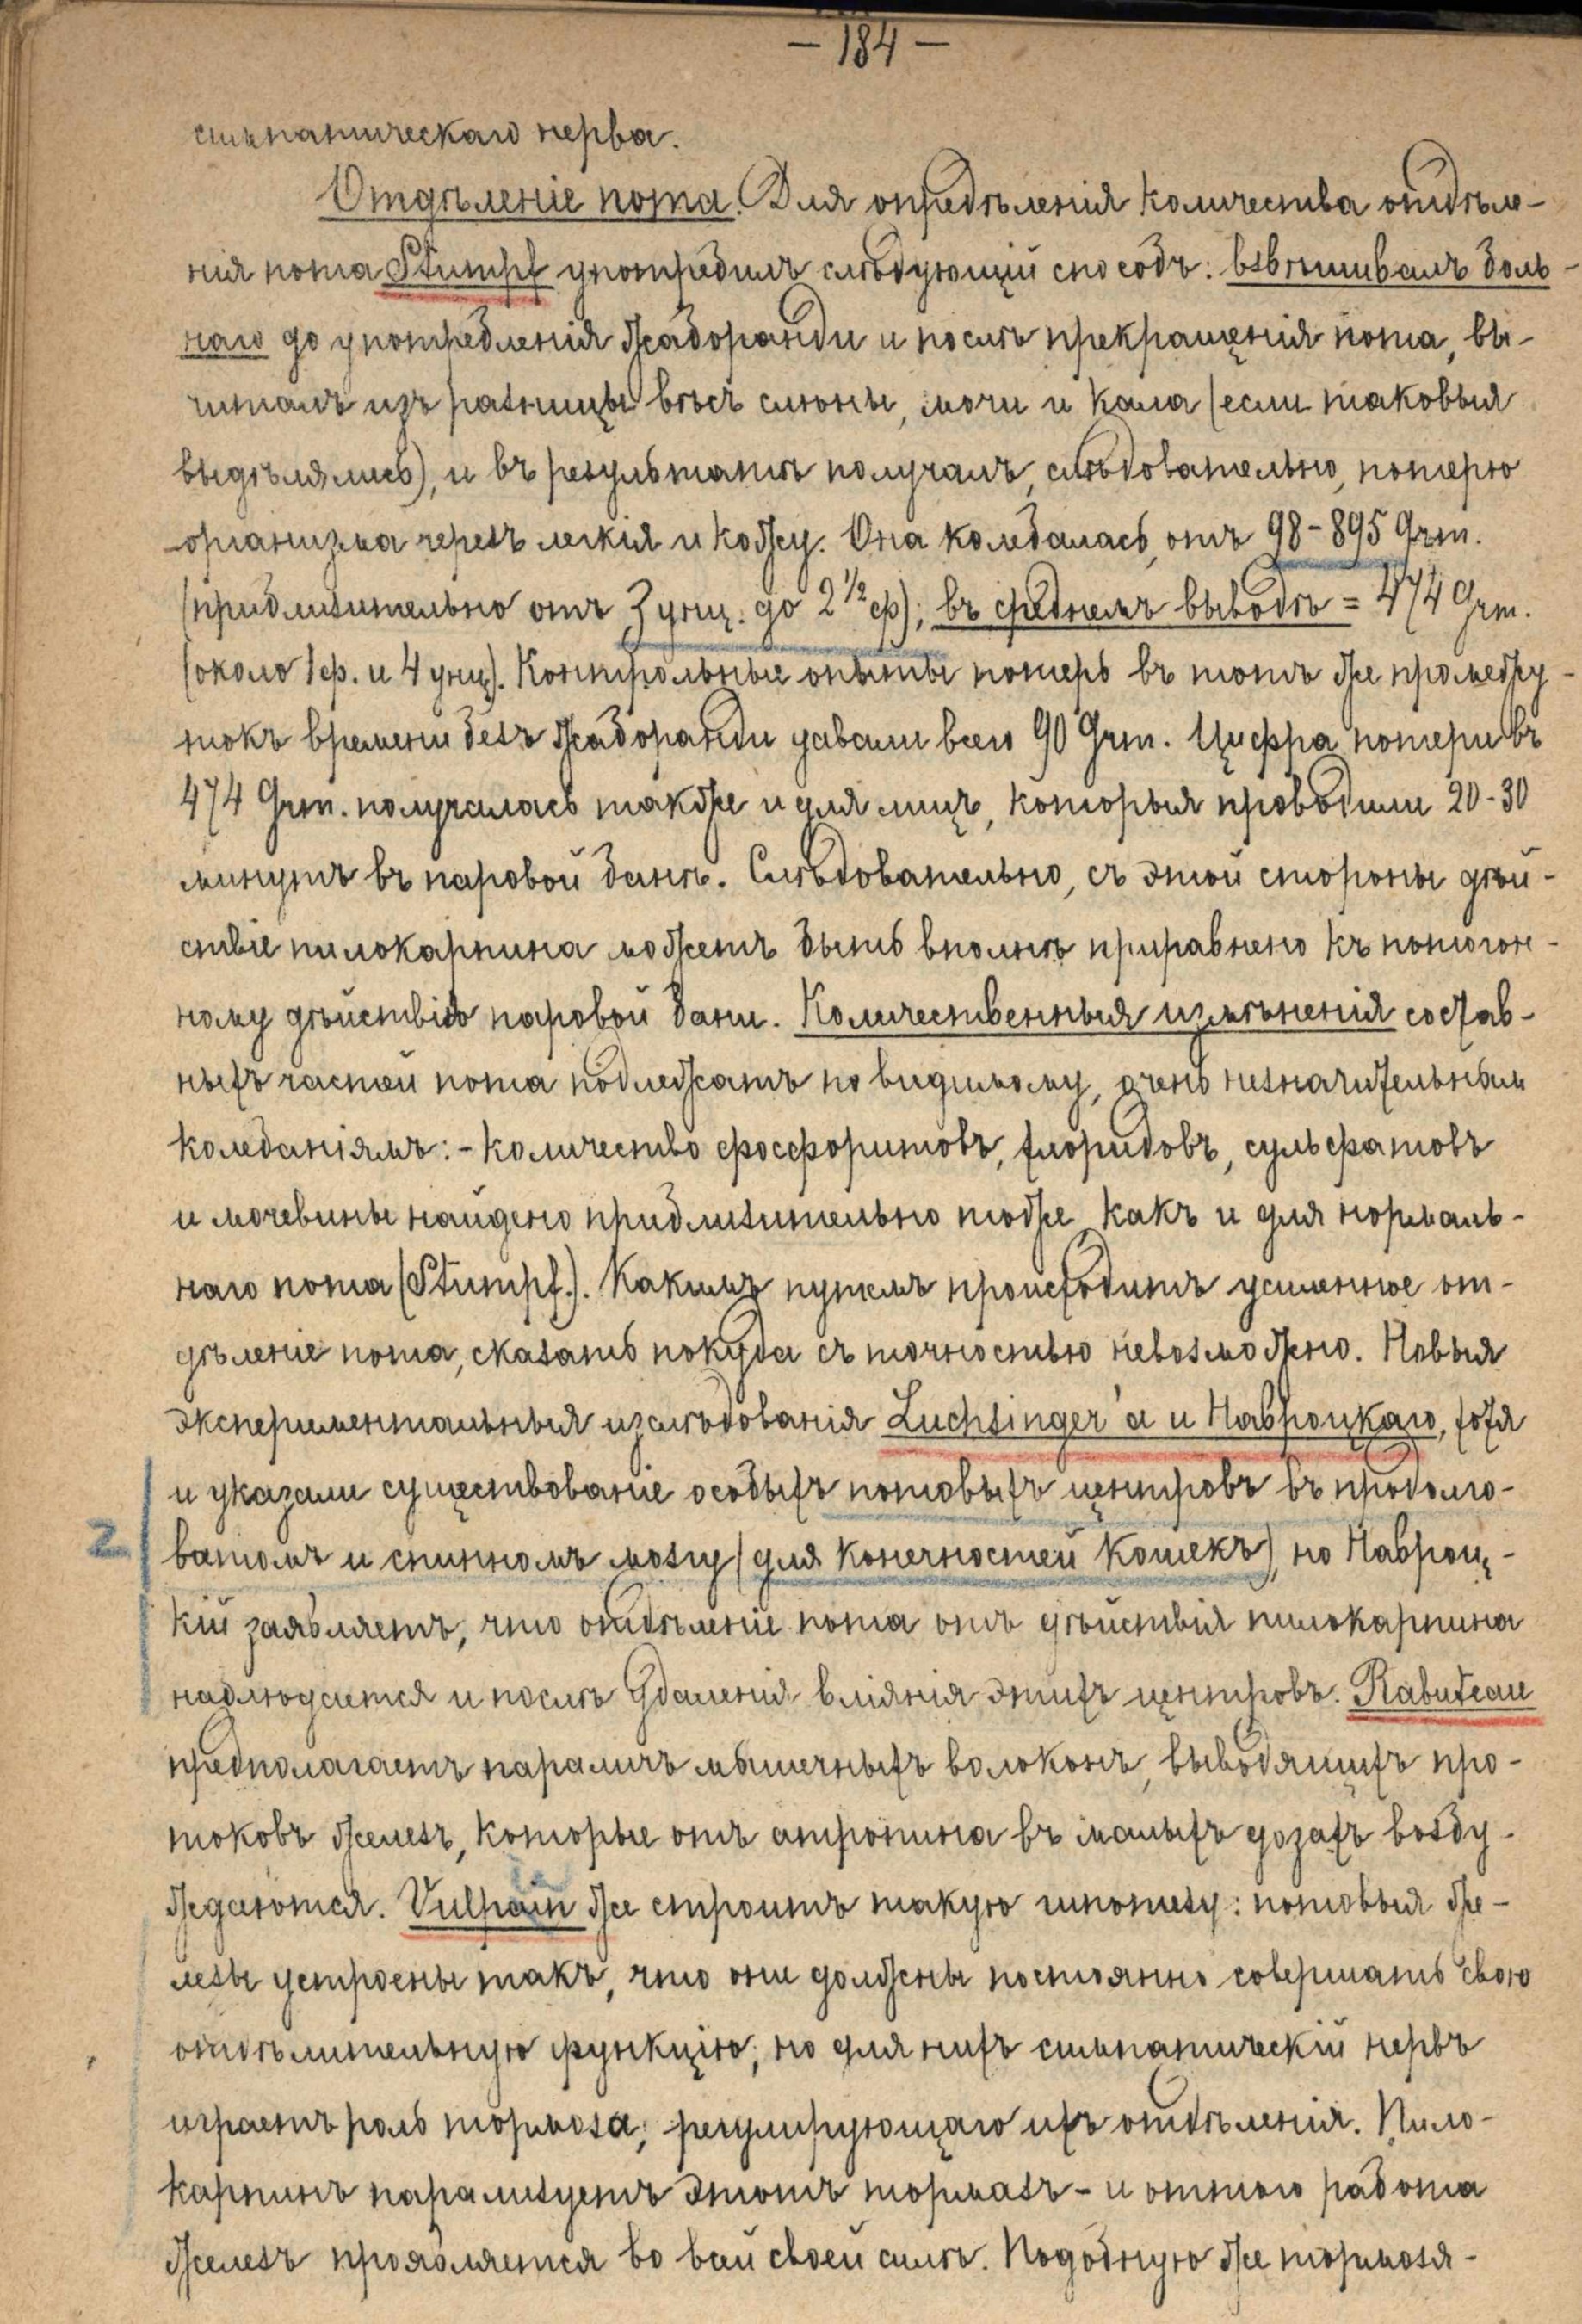 — 184 —
симпатическаго нерва.
Отдѣленіе пота. Для опредѣленія количества отдѣле-
нія пота Stumpf употребилъ слѣдующій способъ: взвѣшивалъ боль-
наго до употребленія жаборанди и послѣ прекращенія пота, вы-
читалъ изъ разницы вѣсъ слюны, мочи и кала (если таковыя
выдѣлялись), и въ результатѣ получалъ, слѣдовательно, потерю
организма черезъ легкія и кожу. Она колебалась отъ 98-895 Grm.
(приблизительно отъ 3 унц. до 2 1/2 ф); въ среднемъ выводѣ = 474 Grm.
(около 1 ф. и 4 унц). Контрольные опыты потерь въ тотъ же промежу-
токъ времени безъ жаборанди давали всего 90 Grm. Цифра потери въ
474 Grm. получалась также и для лицъ, которыя проводили 20-30
минутъ въ паровой банѣ. Слѣдовательно, съ этой стороны дѣй-
ствіе пилокарпина можетъ быть вполнѣ приравнено къ потогон-
ному дѣйствію паровой бани. Количественныя измѣненія состав-
ныхъ частей пота подлежатъ по видимому, очень незначительнымъ
колебаніямъ: - количество фосфоритовъ, хлоридовъ, сульфатовъ
и мочевины найдено приблизительно тоже какъ и для нормаль-
наго пота (Stumpf.). Какимъ путемъ происходитъ усиленное от-
дѣленіе пота, сказать покуда съ точностью невозможно. Новыя
экспериментальныя изслѣдованія Luchsinger'а и Навроцкаго, хотя
и указали существованіе особыхъ потовыхъ центровъ въ продолго-
2 ватомъ и спинномъ мозгу (для конечностей кошекъ), но Навроц-
кій заявляетъ, что отдѣленіе пота отъ дѣйствія пилокарпина
наблюдается и послѣ удаленія вліянія этихъ центровъ. Rabuteau
предполагаетъ параличъ мышечныхъ волоконъ, выводящихъ про-
токовъ железъ, которые отъ атропина въ малыхъ дозахъ возбу-
ждаются. Vulpain же строитъ такую гипотезу: потовыя же-
лезы устроены такъ, что они должны постоянно совершать свою
отдѣлительную функцію; но для нихъ симпатическій нервъ
играетъ роль тормоза, регулирующаго ихъ отдѣленія. Пило-
карпинъ парализуетъ этотъ тормазъ - и оттого работа
железъ проявляется во всей своей силѣ. Подобную же тормозя-